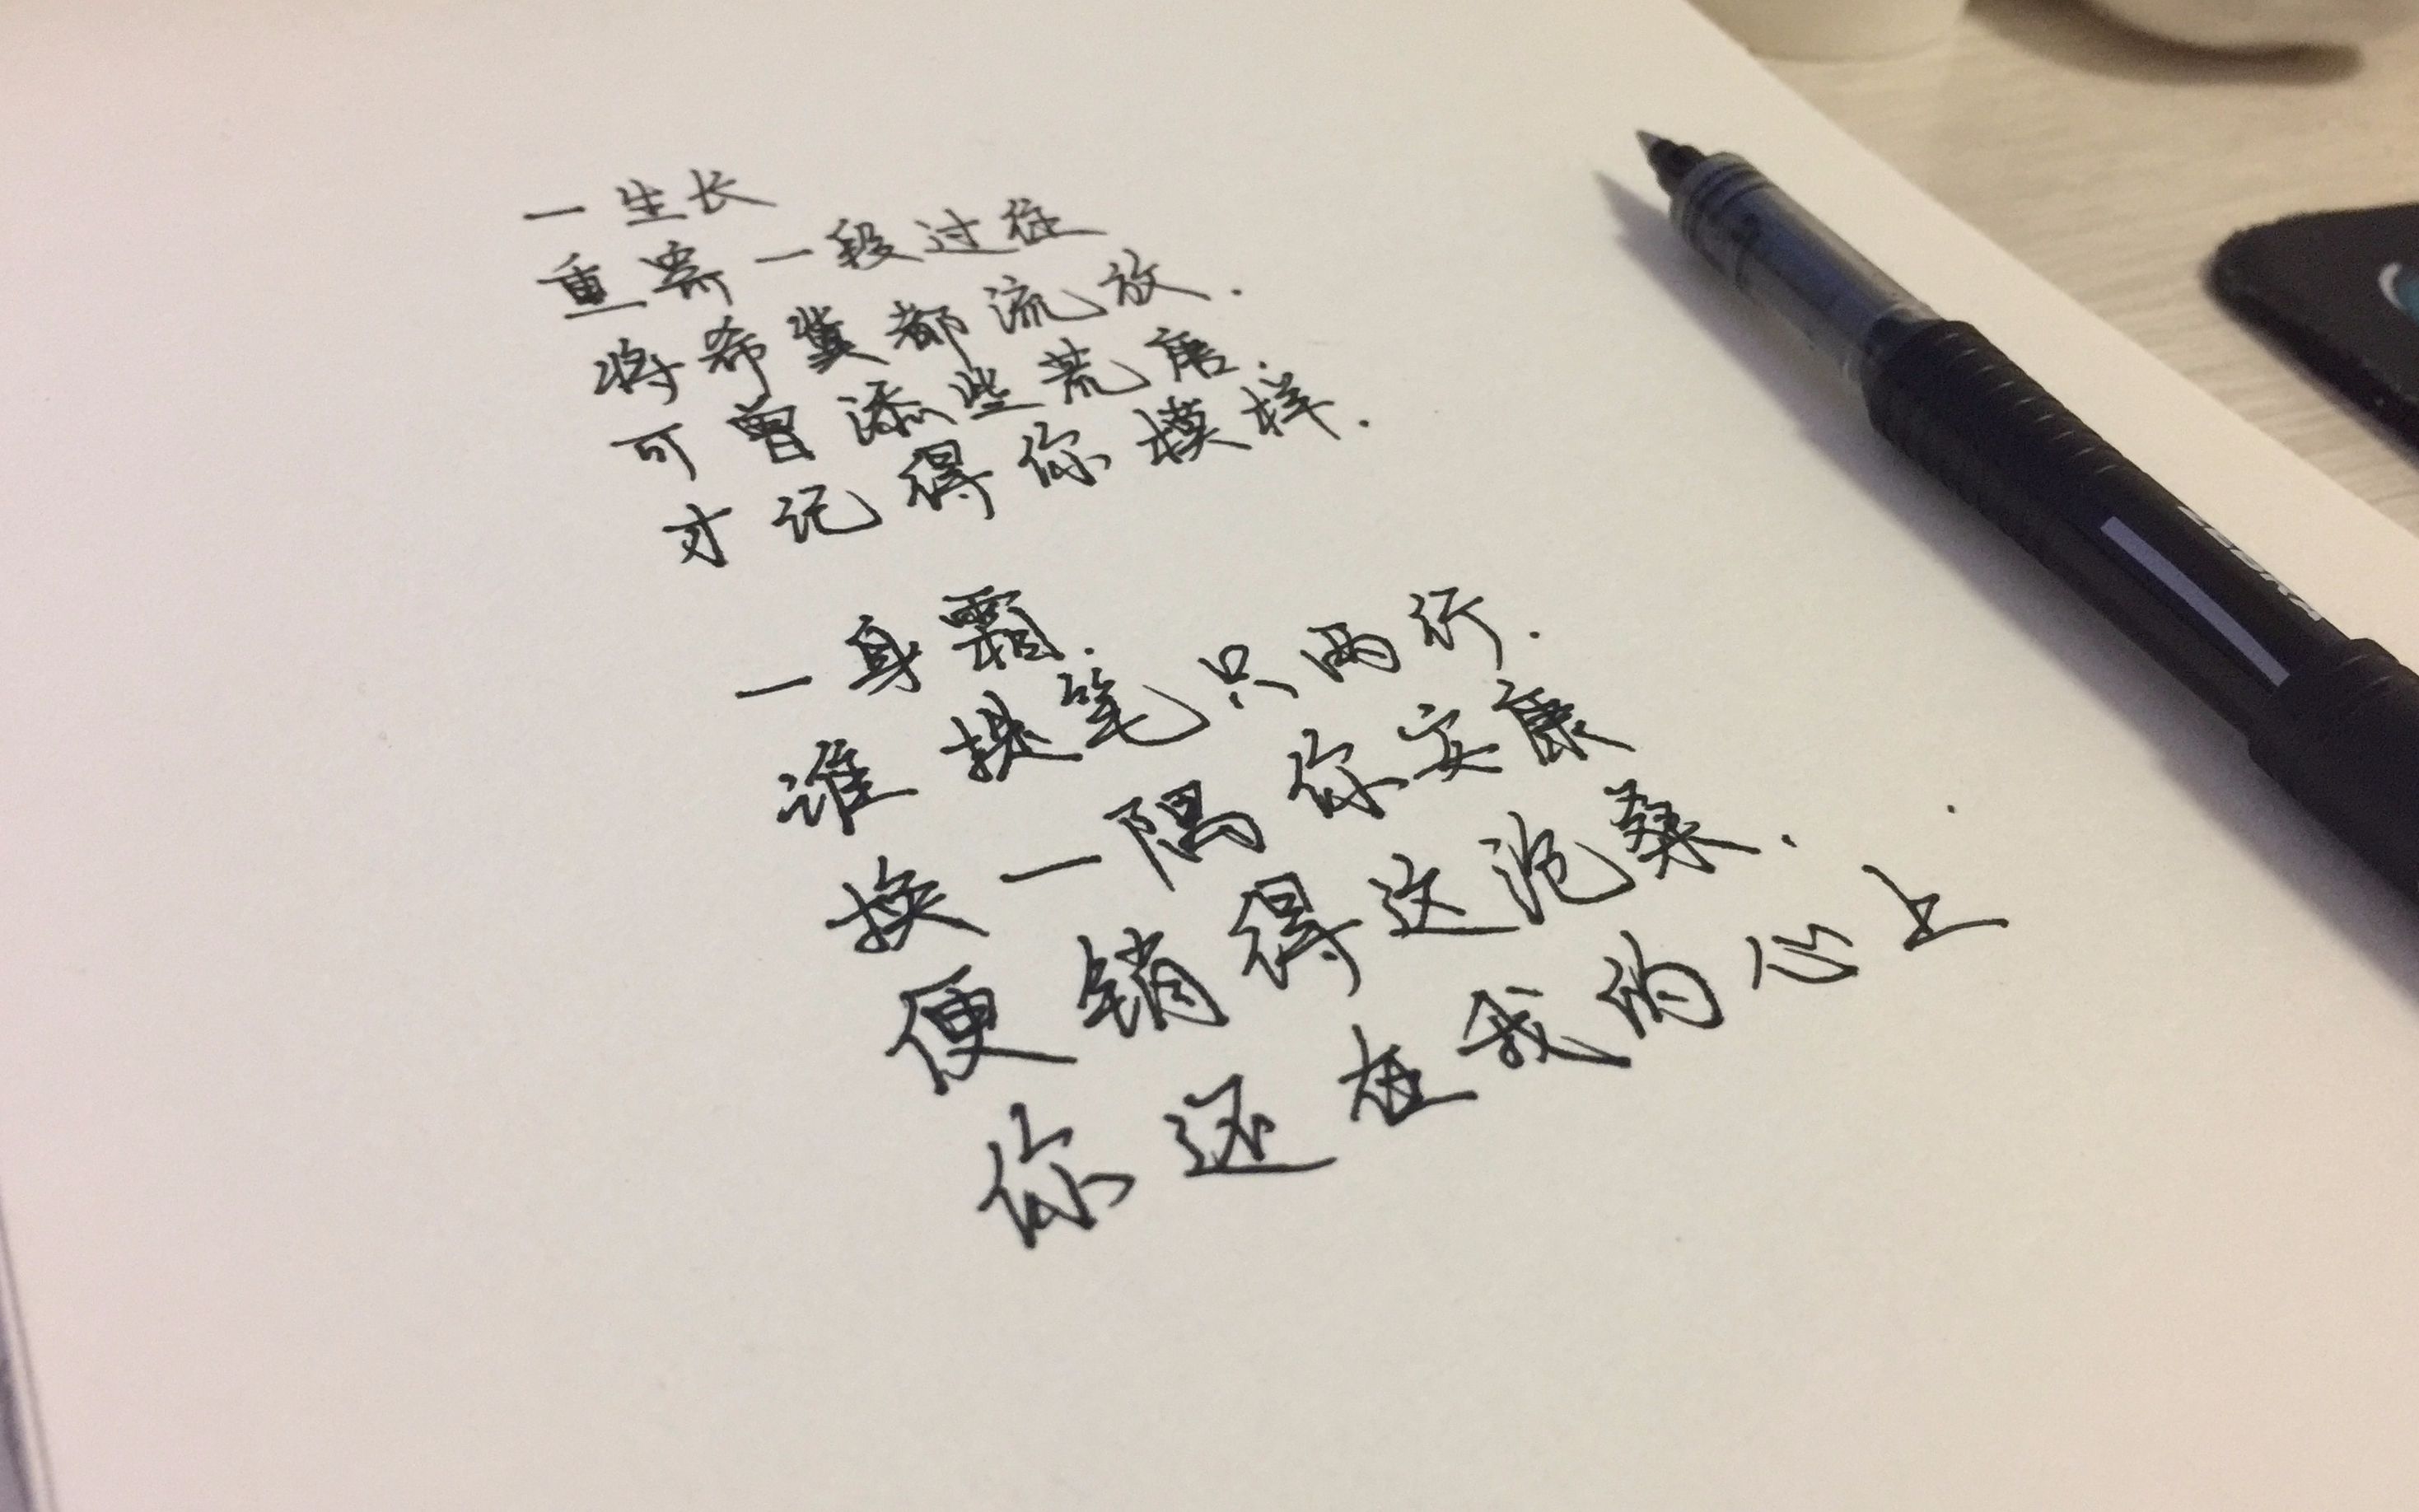 一生长
重寄一段过往
将希冀都流放.
可曾添些荒唐.
才记得你模样.
一身霜.
谁提笔只两行.
换一隅你安康
便销得这沧桑.
你还在我的心上